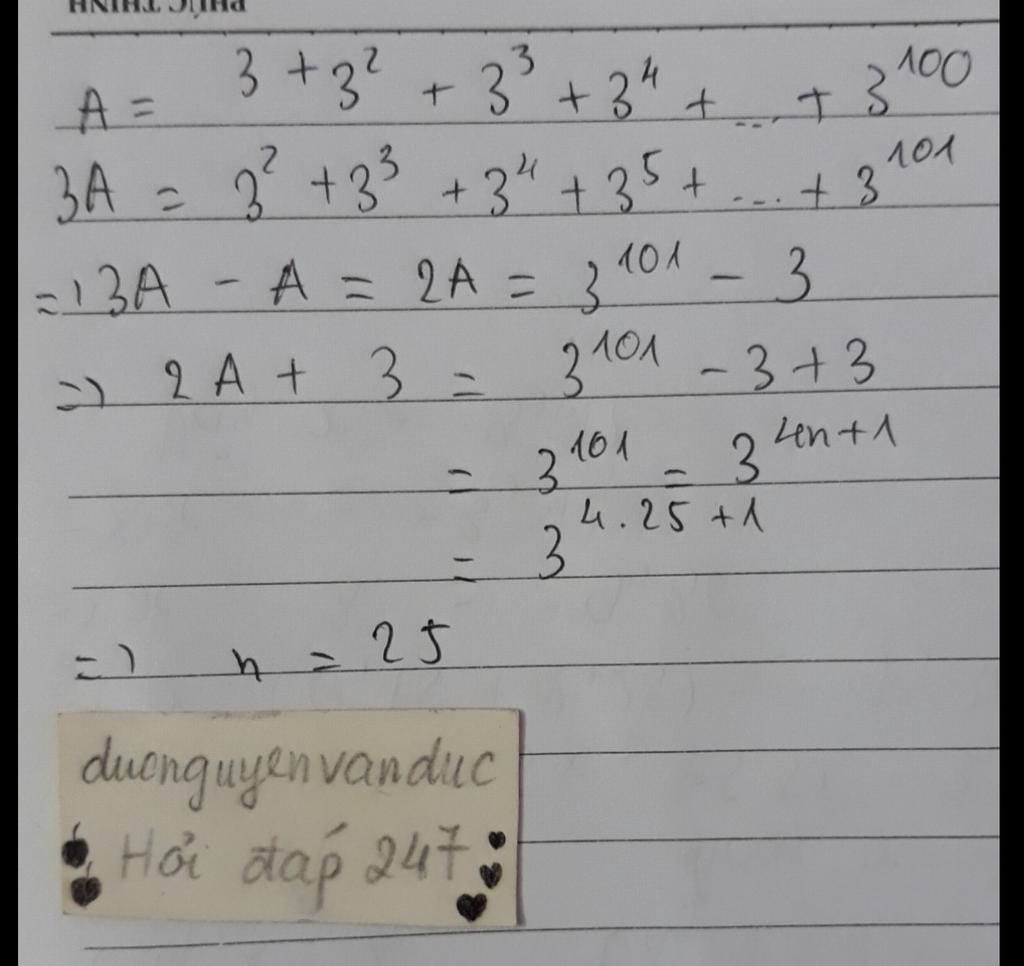 PHÚC THỊNH
A = 3 + 3² + 3³ + 3⁴ + ... + 3¹⁰⁰
3A = 3² + 3³ + 3⁴ + 3⁵ + ... + 3¹⁰¹
=) 3A - A = 2A = 3¹⁰¹ - 3
=) 2A + 3 = 3¹⁰¹ - 3 + 3
= 3¹⁰¹ = 3⁴ⁿ⁺¹
= 3⁴·²⁵⁺¹
=) n = 25
duonguyenvanduc
Hỏi đáp 247